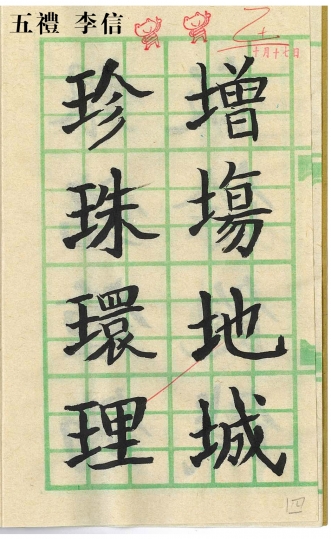 五禮 李信
十月十七日
增塲地城
珍珠環理
四